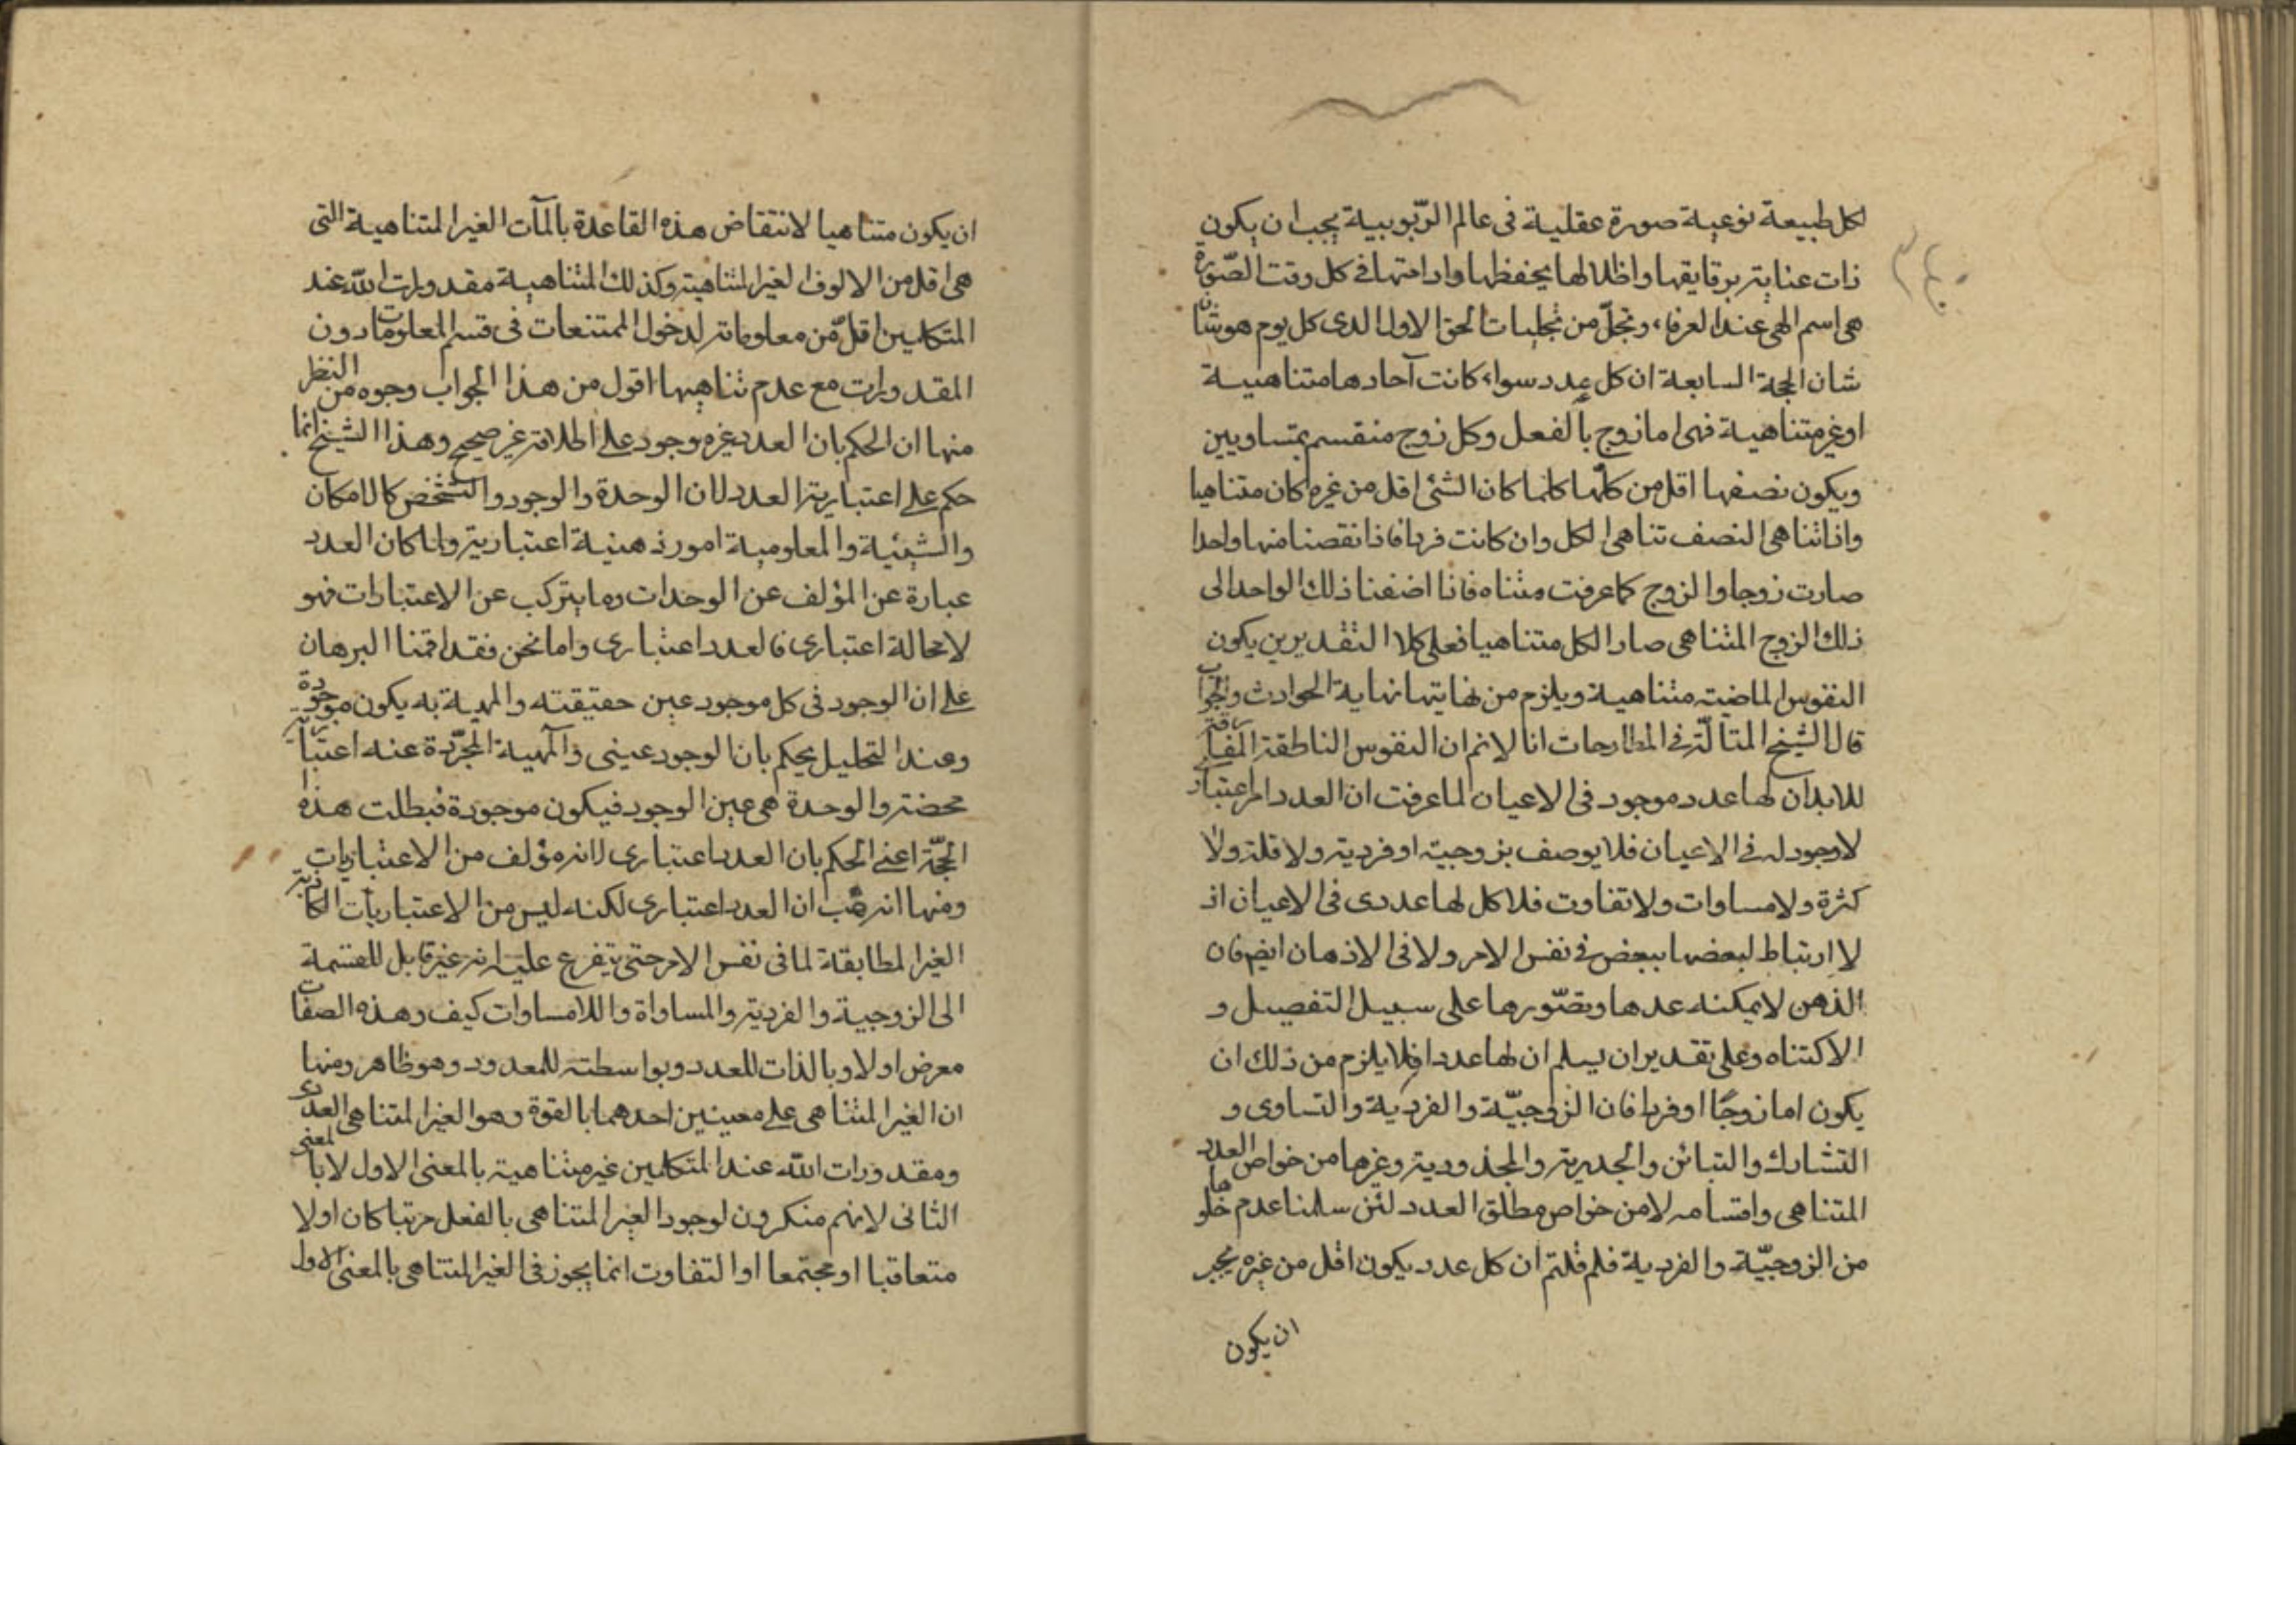 لكل طبيعة نوعية صورة عقلية فى عالم الرّبوبيية يجب ان يكون
ذات عناية برقايقها واظلالها يحفظها وادامتها فى كل وقت الصّورة
هى اسم الهى عند العرفاء وتجلّ من تجليات الحق الاول الذى كل يوم هو شأنا
شان الحجة السابعة ان كل عدد سواء كانت آحادها متناهيية
او غير متناهية فهى اما زوج بالفعل وكل زوج منقسم بمتساويين
ويكون نصفها اقل من كلّها كلما كان الشئ اقل من غيره كان متناهيا
واذا تناهى النصف تناهى الكل وان كانت فردا فاذا نقصنا منها واحدا
صارت زوجا والزوج كما عرفت متناه فاذا اضفنا ذلك الواحد الى
ذلك الزوج المتناهى صار الكل متناهيا فعلى كلا التقديرين يكون
النفوس الماضية متناهية ويلزم من نهايتها نهاية الحوادث والجواب
قال الشيخ المتألّه فى المطارحات انا لا نم ان النفوس الناطقة المفارقة
للابدان لها عدد موجود فى الاعيان لما عرفت ان العدد امر اعتبارى
لا وجود له فى الاعيان فلا يوصف بزوجية او فردية ولا قلة ولا
كثرة ولا مساوات ولا تفاوت فلا كل لها عددى فى الاعيان اذ
لا ارتباط لبعضها ببعض فى نفس الامر ولا فى الاذهان ايضا فان
الذهن لا يمكنه عدها وتصّورها على سبيل التفصيل و
الاكتناه وعلى تقدير ان يسلم ان لها عددا فلا يلزم من ذلك ان
يكون اما زوجًا او فردا فان الزوجيّة والفردية والتساوى و
التشارك والتبائن والجديرية والمجذورية وغيرها من خواص العدد
المتناهى واقسامه لا من خواص مطلق العدد لئن سلمنا عدم خلوها
من الزوجيّة والفردية فلم قلتم ان كل عدد يكون اقل من غيره يجب
ان يكون
ان يكون متناهيا لانتقاض هذه القاعدة بالمآت الغير المتناهية التى
هى اقل من الالوف الغير المتناهية وكذلك المتناهية مقدورات الله عند
المتكلمين اقلّ من معلوماته لدخول الممتنعات فى قسم المعلومات دون
المقدورات مع عدم تناهيها اقول من هذا الجواب وجوه من النظر
منها ان الحكم بان العدد غير موجود على اطلاقه غير صحيح وهذا الشيخ انما
حكم على اعتبارية العدد لان الوحدة والوجود والتشخص كالامكان
والشيئية والمعلومية امور ذهنية اعتبارية ولما كان العدد
عبارة عن المؤلف عن الوحدات وما يتركب عن الاعتبارات فهو
لا محالة اعتبارى فالعدد اعتبارى واما نحن فقد اقمنا البرهان
على ان الوجود فى كل موجود عين حقيقته والمهية به يكون موجودة
وعند التحليل يحكم بان الوجود عينى والمهية المجرّدة عنه اعتبارية
محضة والوحدة هى عين الوجود فيكون موجودة فبطلت هذه
الحجّة اعنى الحكم بان العدد اعتبارى لانه مؤلف من الاعتباريات
ومنها انه هب ان العدد اعتبارى لكنه ليس من الاعتباريات الكاذبة
الغير المطابقة لما فى نفس الامر حتى يتفرع عليه انه غير قابل للقسمة
الى الزوجية والفردية والمساواة واللامساوات كيف وهذه الصفات
معرض اولا وبالذات للعدد وبواسطته للمعدود وهو ظاهر ومنها
ان الغير المتناهى على معينين احدهما بالقوة وهو الغير المتناهى العددى
ومقدورات الله عند المتكلمين غير متناهية بالمعنى الاول لا بالمعنى
الثانى لانهم منكرون لوجود الغير المتناهى بالفعل مرتبا كان او لا
متعاقبا او مجتمعا او التفاوت انما يجوز فى الغير المتناهى بالمعنى الاول